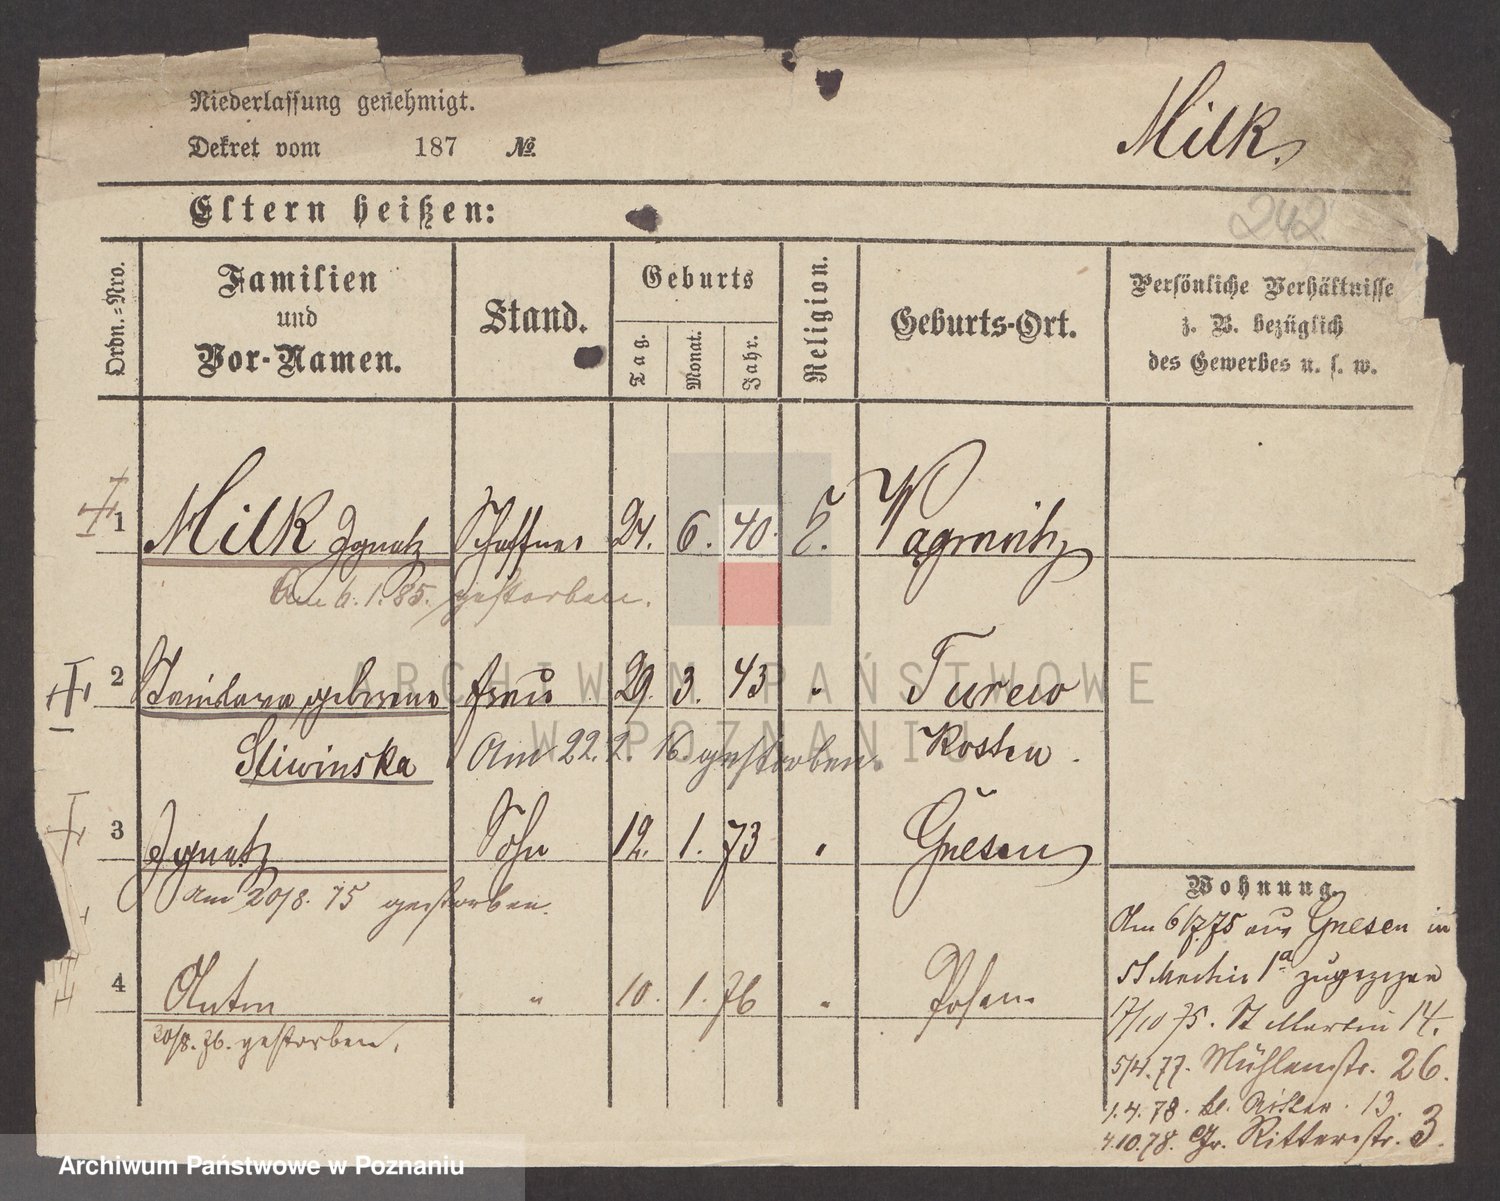 Niederlassung genehmigt.
Dekret vom 187 №
Milk.
242
Eltern heißen:
Ordn.-Nro.
Familien
und
Vor-Namen.
Stand.
Geburts
Tag.
Monat.
Jahr.
Religion.
Geburts-Ort.
Persönliche Verhältnisse
z. B. bezüglich
des Gewerbes u. s. w.
1 Milk Ignatz Schaffner 24. 6. 40.
Am 6. 1. 85. gestorben.
2 geborene Frau 29. 3. 43 " Turew
Sliwinska Am 22. 2. 16. gestorben. Kosten.
3 Ignatz Sohn 12. 1. 73 " Gnesen
Am 20/8. 75 gestorben.
4 Anton " 10. 1. 76 " Posen.
20/8. 76. gestorben.
Wohnung.
Am 6/7 75 aus Gnesen in
St Martin 1a zugezogen
17/10 75. St Martin 14.
5/4. 77. Mühlenstr. 26.
1.4.78. kl. Ritter. 13.
4.10.78. Gr. Ritterstr. 3.
ARCHIWUM PAŃSTWOWE
W POZNANIU
Archiwum Państwowe w Poznaniu